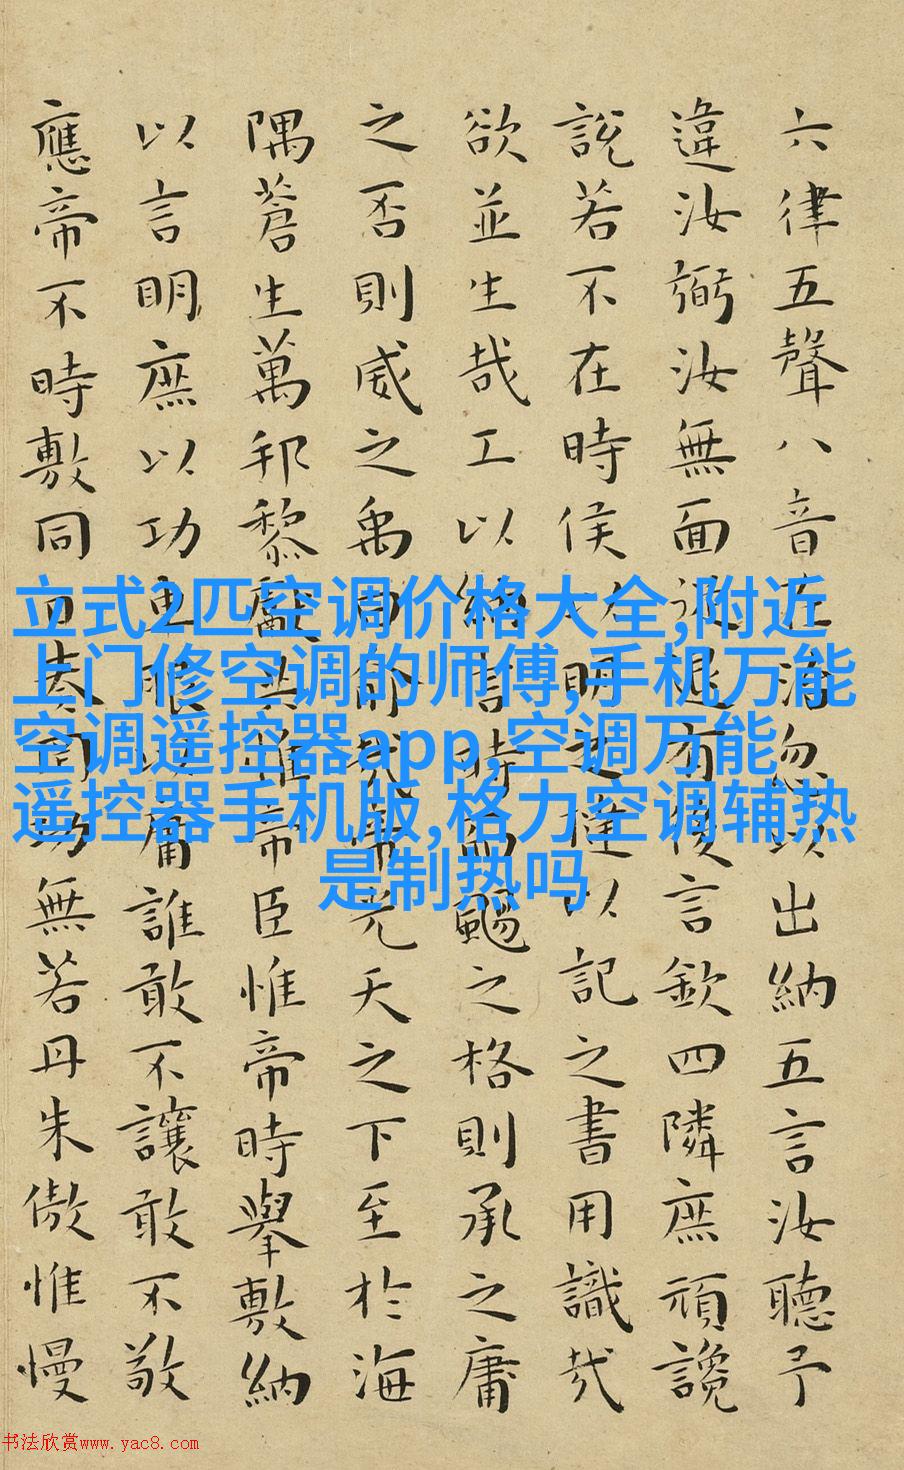 六律五聲八音在治忽以出納五言汝聽予
違汝弼汝無面從退有後言欽四隣庶頑讒
說若不在時侯以明之撻以記之書用識哉
欲並生哉工以納言時而颺之格則承之庸
之否則威之禹曰俞哉帝光天之下至於海
隅蒼生萬邦黎獻共惟帝臣惟帝時舉敷納
以言明庶以功車服以庸誰敢不讓敢不敬
應帝不時敷同日奏罔功無若丹朱傲惟慢
立式2匹空调价格大全,附近
上门修空调的师傅,手机万能
空调遥控器app,空调万能
遥控器手机版,格力空调辅热
是制热吗
书法欣赏www.yac8.com